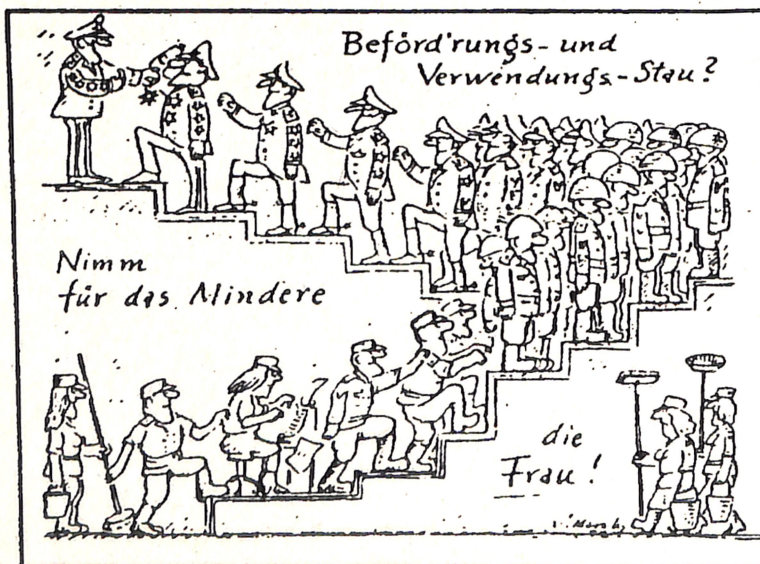 Beförd'rungs- und
Verwendungs-Stau?
Nimm
für das Mindere
die
Frau!